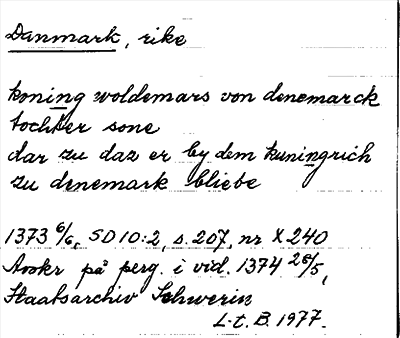 Danmark, rike
koning woldemars von denemarck
tochter sone
dar zu daz er by dem kuningrich
zu denemark bliebe
1373 6/6, SD 10:2, s. 207, nr X 240
Avskr på perg. i vid. 1374 26/5,
Staatsarchiv Schwerin
L-t. B. 1977.